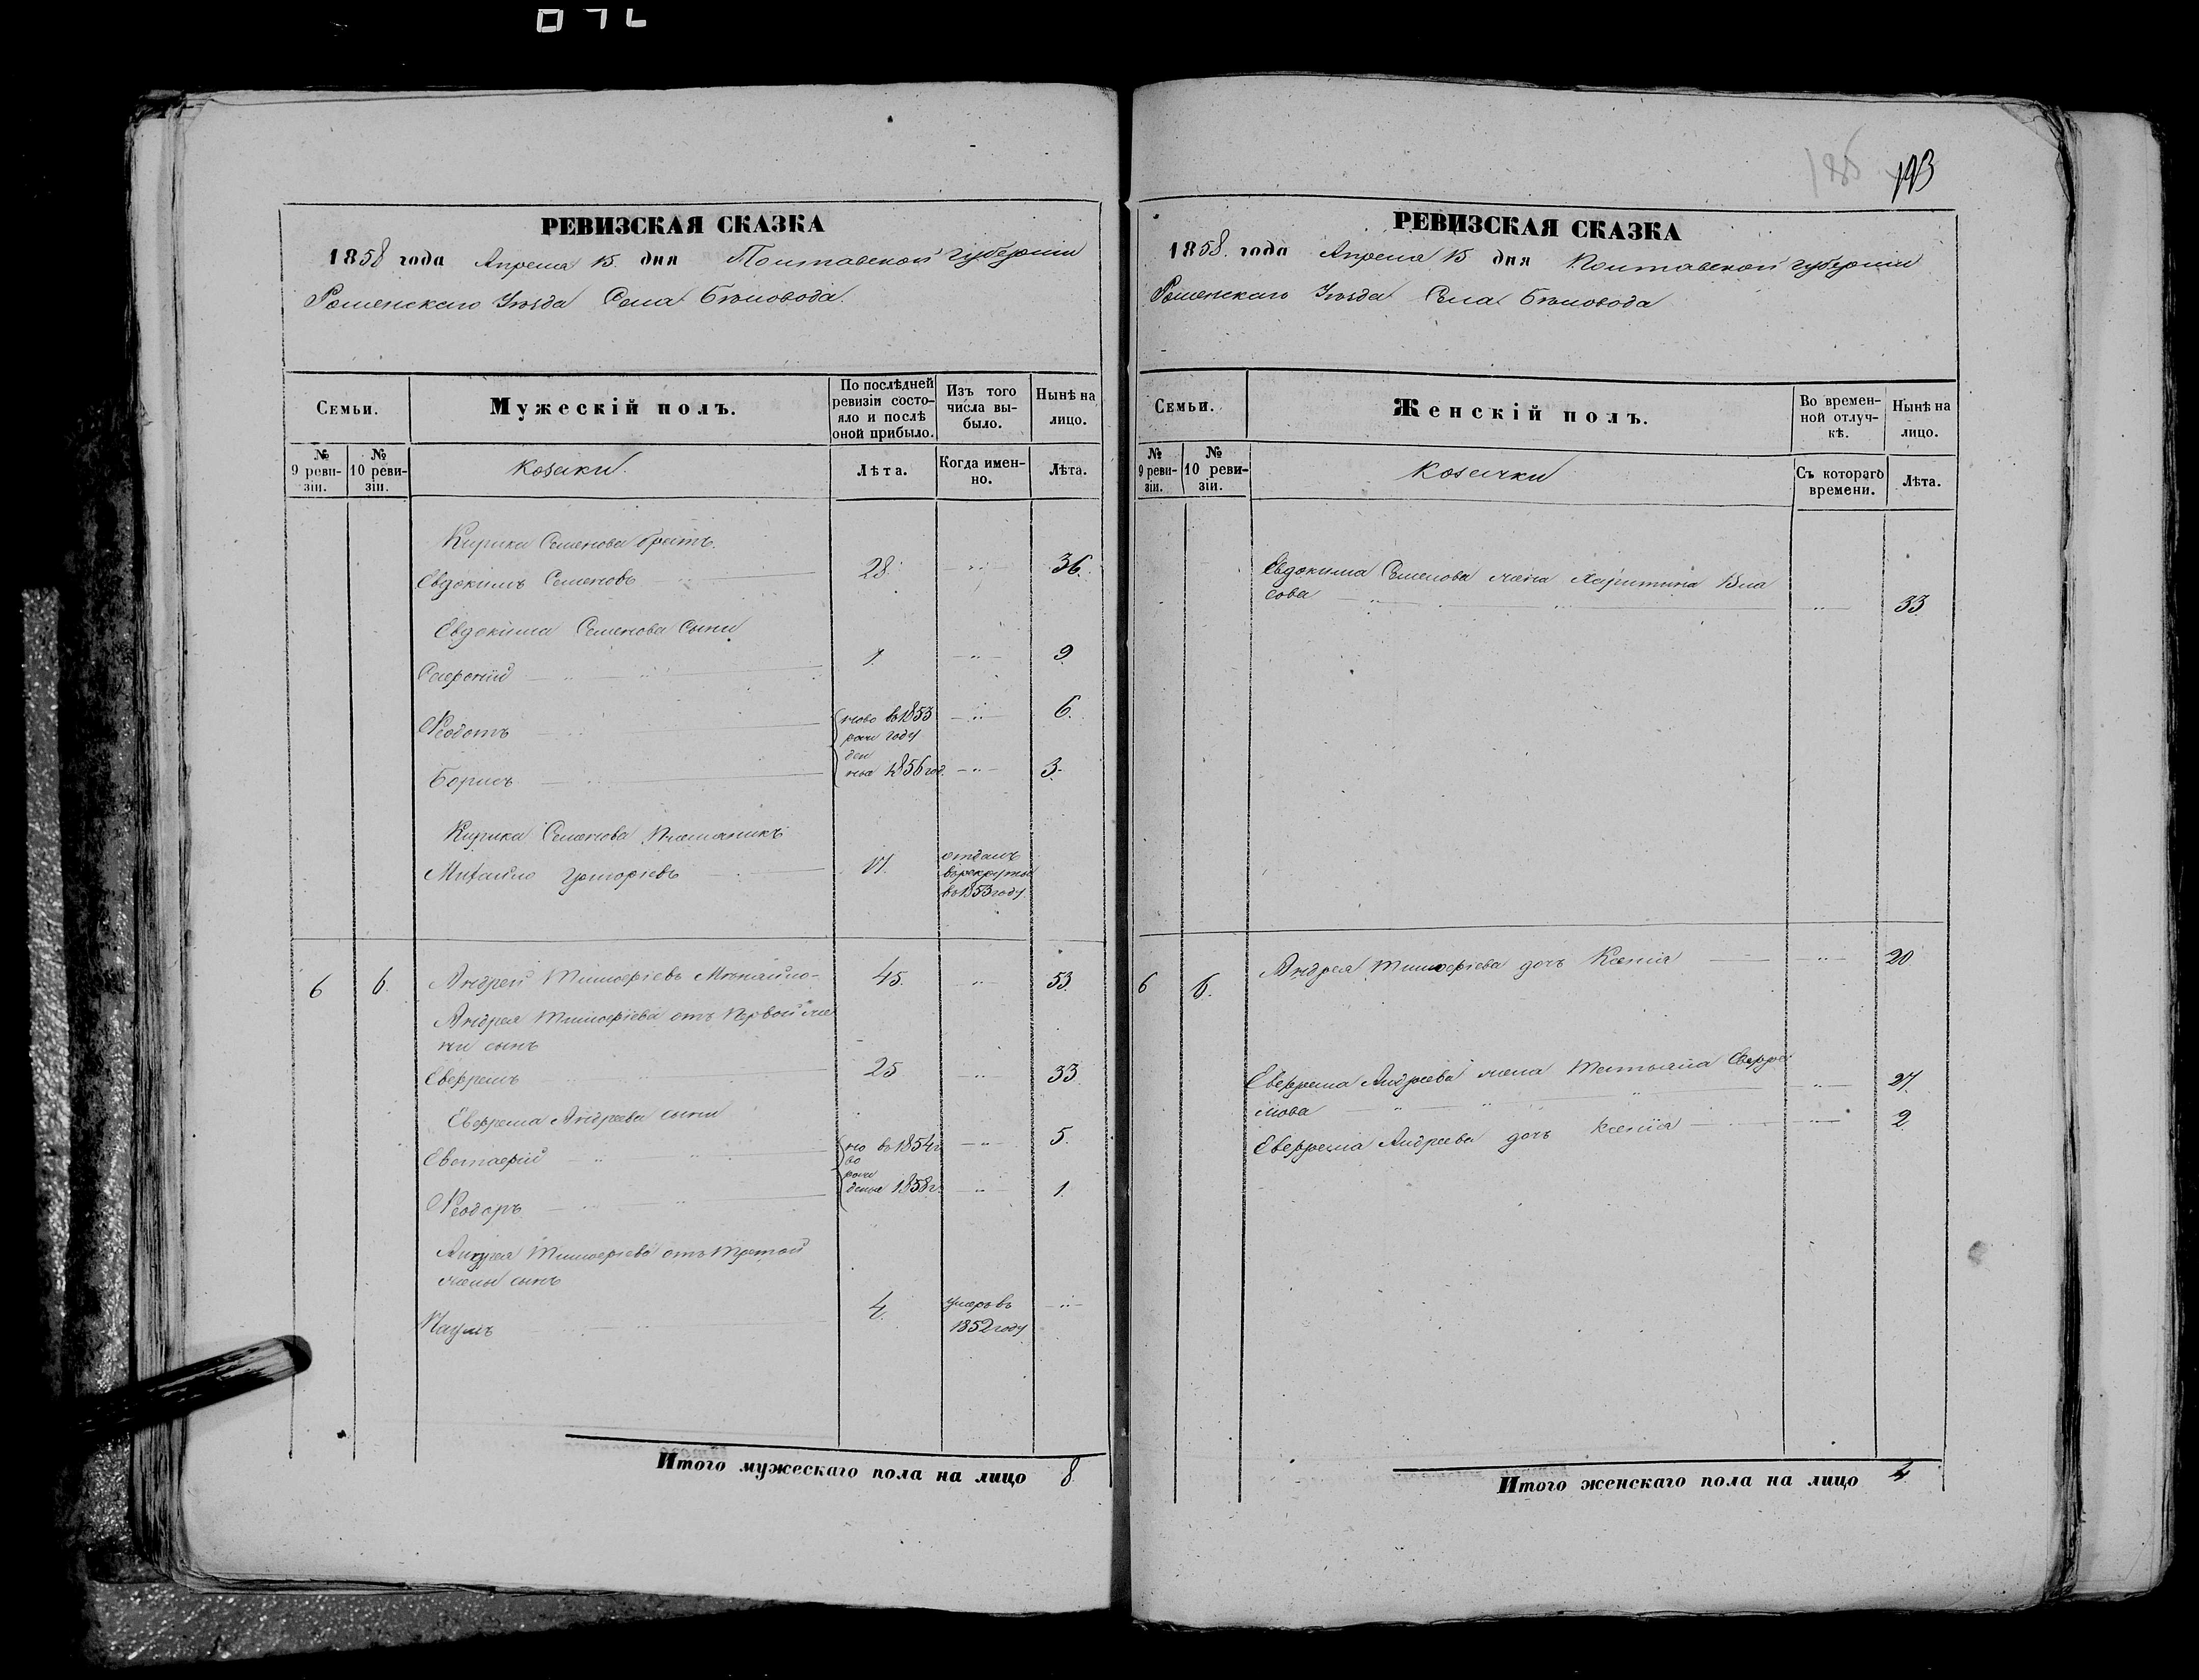 РЕВИЗСКАЯ СКАЗКА
1858 года Апреля 15 дня Полтавской губернiи
Роменскаго Уѣзда Села Бѣловода.
Семьи.
Мужескій полъ.
По послѣдней ревизіи состояло и послѣ оной прибыло.
Изъ того числа выбыло.
Нынѣ на лицо.
№ 9 ревизіи.
№ 10 ревизіи.
Козаки.
Лѣта.
Когда именно.
Лѣта.
Кирика Семенова братъ.
Евдокимъ Семеновъ 28. 36.
Евдокима Семенова сыны
Софроній 1. 9
Ѳеодотъ ново въ 1853 6.
рож году
ден
Борисъ ные 1856 год. 3.
Кирика Семенова племяникъ
Михайло Григорьевъ 17. отданъ
в рекруты
въ 1853 году.
6 6. Андрей Тимофіевъ 45. 53.
Андрея Тимофіева отъ первой же
ны сынъ
Евфремъ 25 33.
Евфрема Андреева сыны
Евстафій но въ 1854 г. 5.
во
рож
Ѳеодоръ деные 1858 г. 1.
Андрея Тимофіева отъ третой
жены сынъ
Наумъ 4. умеръ въ
1852 году
Итого мужескаго пола на лицо 8
193
РЕВИЗСКАЯ СКАЗКА
1858. года Апреля 15 дня Полтавской губернiи
Роменскаго Уѣзда Села Бѣловода
Семьи.
Женскій полъ.
Во временной отлучкѣ.
Нынѣ на лицо.
№ 9 ревизіи.
№ 10 ревизіи.
Козачки
Съ котораго времени.
Лѣта.
Евдокима Семенова жена Харитина Вла
сова 33.
6 6. Андрея Тимофіева дочь Ксенія 20
Евфрема Андреева жена Татьяна Евфре
мова 27.
Евфрема Андреева дочь Ксенія 2
Итого женскаго пола на лицо 4